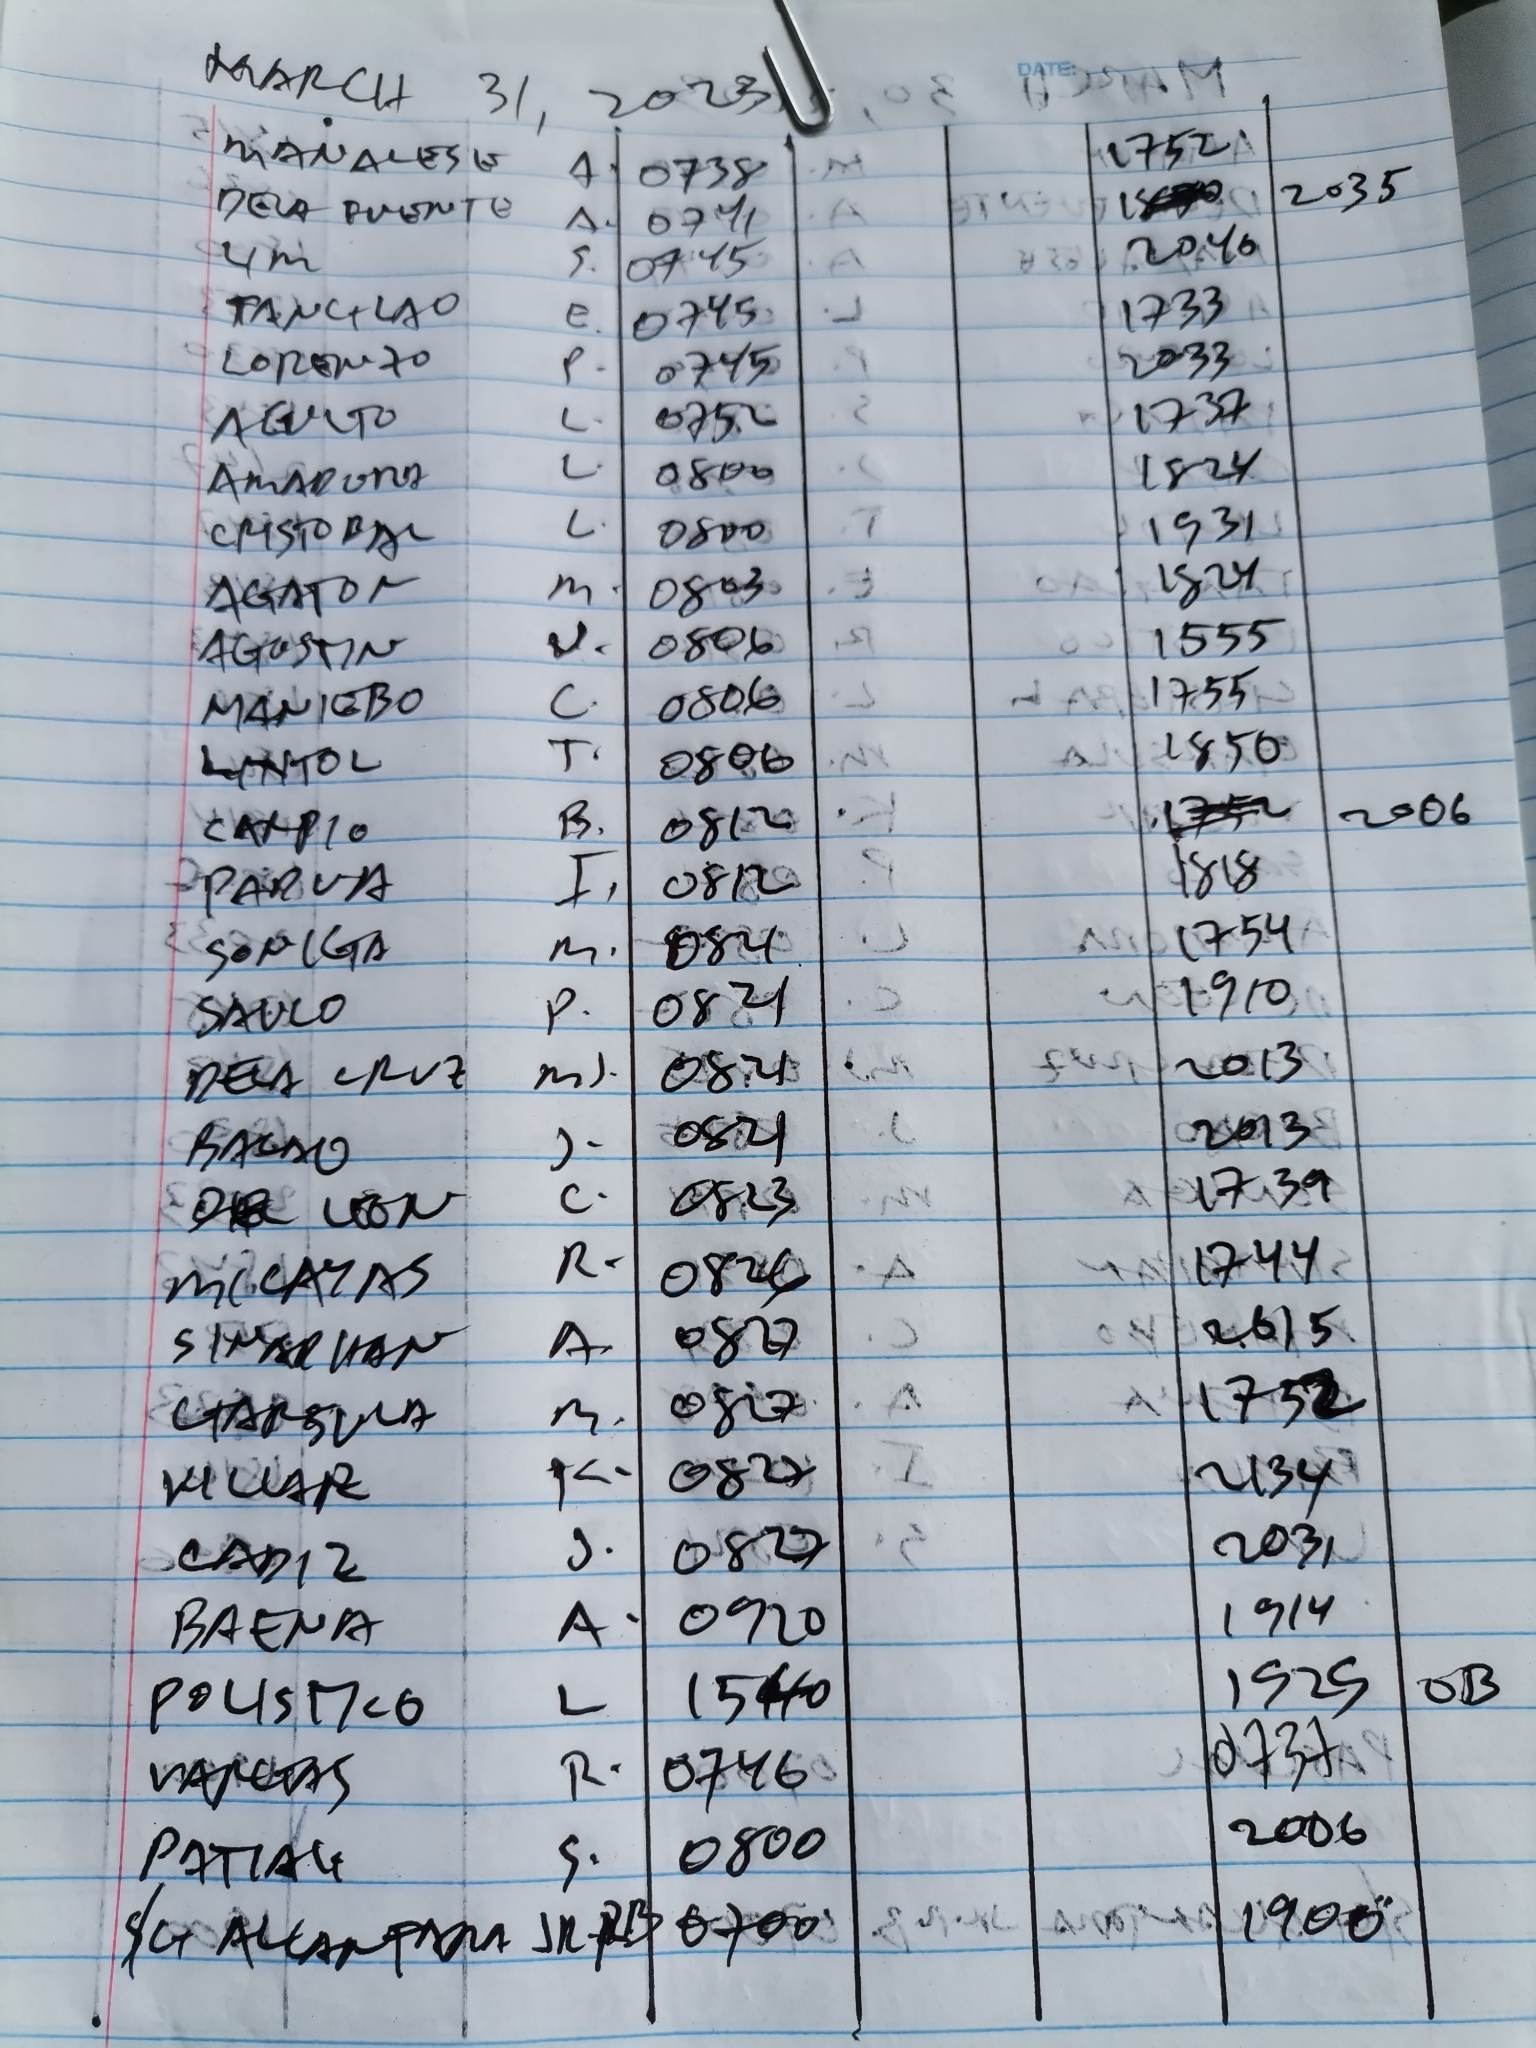 MARCH 31, 2023
DATE:
MANALESE A. 0738 1752
DELA PUENTE A. 0741 2035
LIM S. 0745 2040
TANGLAO E. 0745 1733
LORENZO P. 0745 2033
AGULTO L. 0752 1737
AMADORA L. 0800 1824
CRISTOBAL L. 0800 1931
AGATON M. 0803 1824
AGUSTIN N. 0806 1555
MANIEBO C. 0806 1755
LINTOL T. 0806 1850
CAMPIO B. 0812 1752 2006
PARUA I. 0812 1818
SONIGA M. 0821 1754
SAULO P. 0821 1910
DELA CRUZ MJ. 0821 2013
BACAO J. 0821 2013
DE LEON C. 0823 1739
MICAYAS R. 0826 1744
SINARHAN A. 0827 2015
GARSULA M. 0827 1752
VILLAR K. 0827 2134
CADIZ J. 0827 2031
BAENA A. 0920 1914
POLISTICO L 1540 1929 OB
VARGAS R. 0746 0737
PATIAG S. 0800 2006
S/G ALCANTARA JR. RB 0700 1900